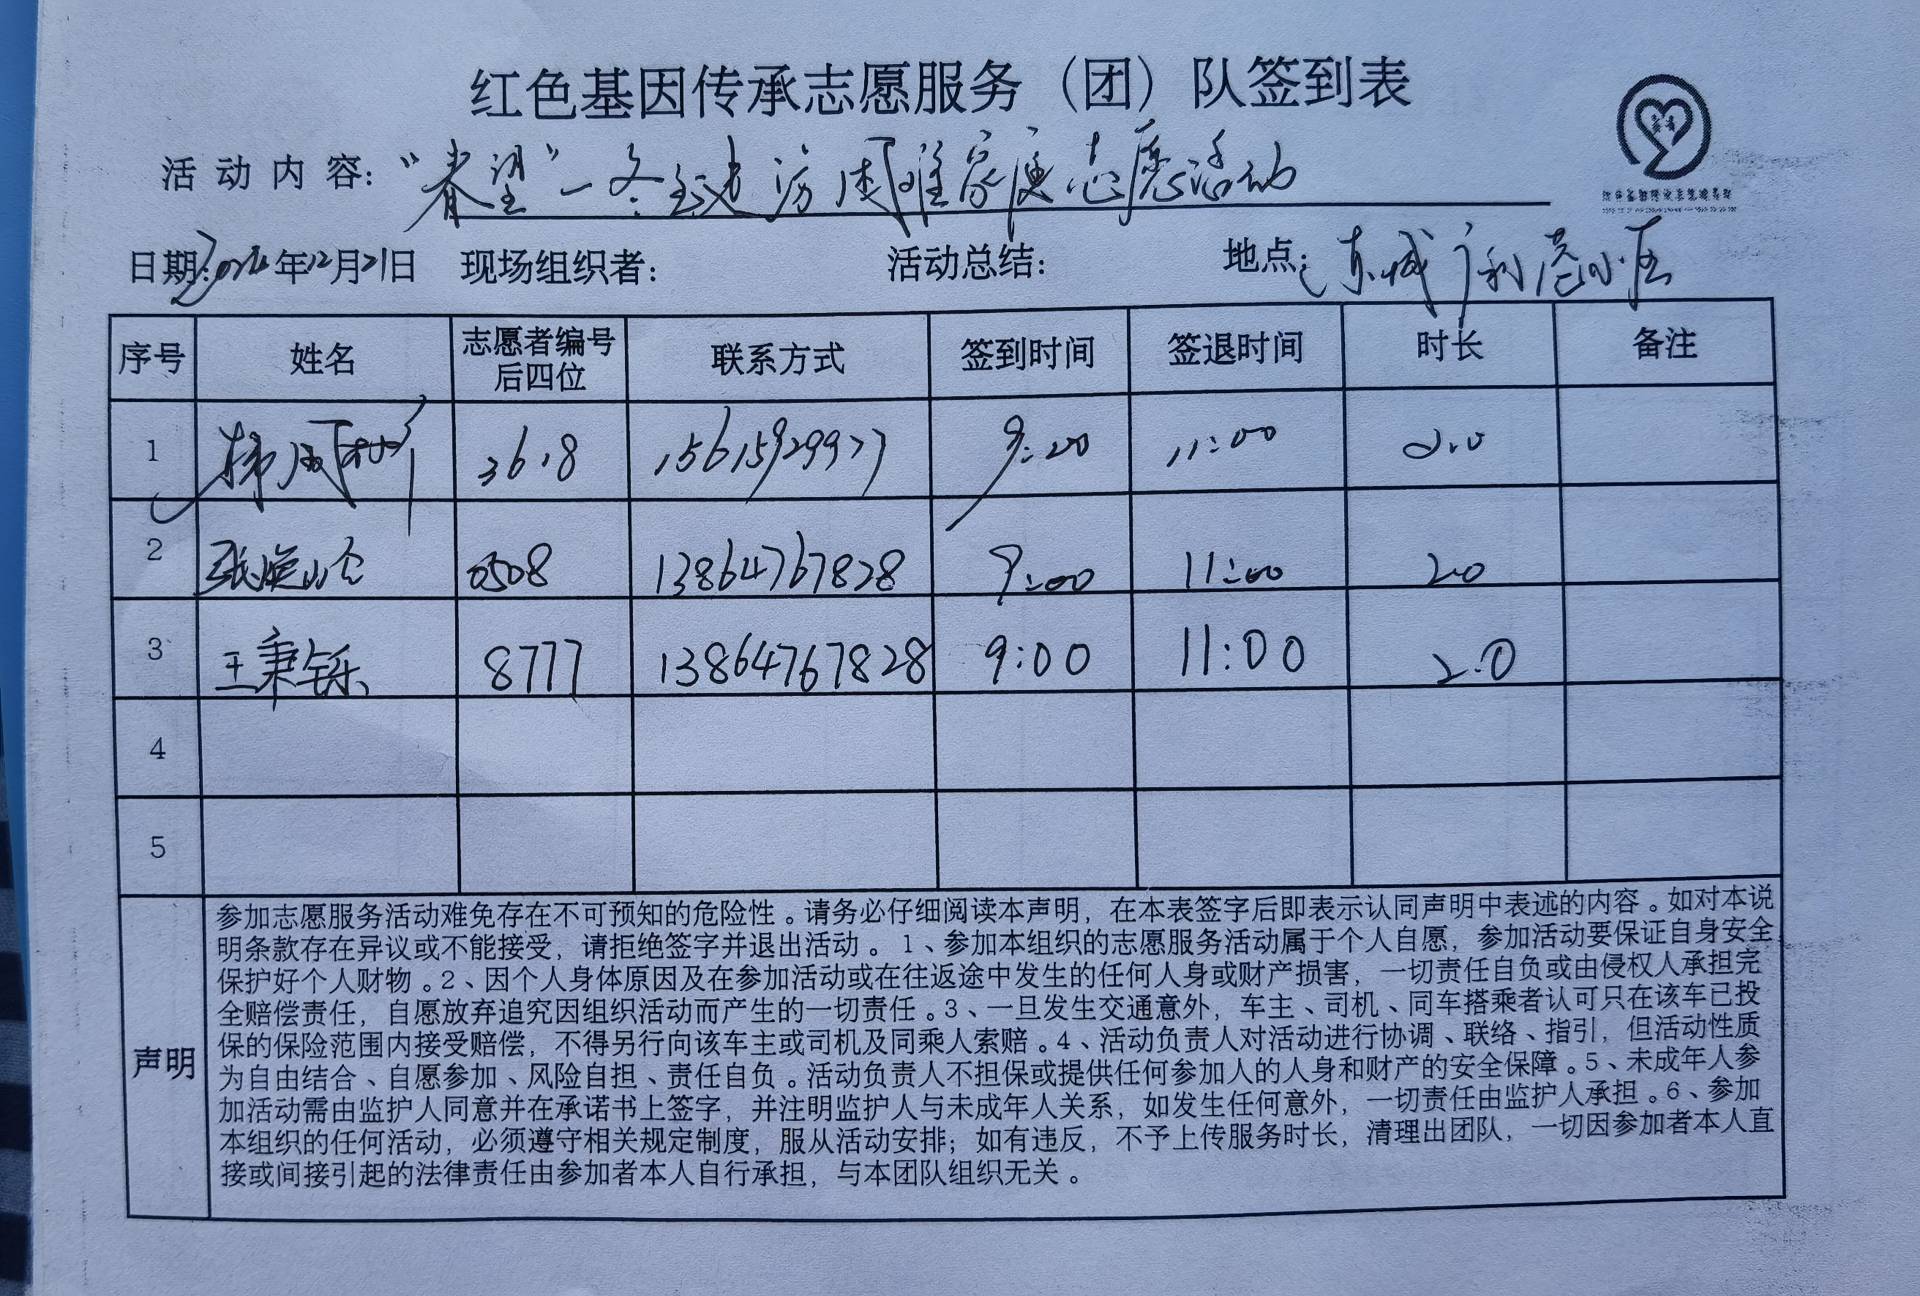 红色基因传承志愿服务（团）队签到表
活动内容：“春望”一冬至走访困难家庭志愿活动
日期：2024年12月21日 现场组织者： 活动总结： 地点：东城广利港小区
序号 姓名 志愿者编号后四位 联系方式 签到时间 签退时间 时长 备注
1 3618 15615929977 9:20 11:00 2.0
2 0508 13864767828 9:00 11:00 2.0
3 王秉铄 8777 13864767828 9:00 11:00 2.0
4
5
声明
参加志愿服务活动难免存在不可预知的危险性。请务必仔细阅读本声明，在本表签字后即表示认同声明中表述的内容。如对本说
明条款存在异议或不能接受，请拒绝签字并退出活动。1、参加本组织的志愿服务活动属于个人自愿，参加活动要保证自身安全
保护好个人财物。2、因个人身体原因及在参加活动或在往返途中发生的任何人身或财产损害，一切责任自负或由侵权人承担完
全赔偿责任，自愿放弃追究因组织活动而产生的一切责任。3、一旦发生交通意外，车主、司机、同车搭乘者认可只在该车已投
保的保险范围内接受赔偿，不得另行向该车主或司机及同乘人索赔。4、活动负责人对活动进行协调、联络、指引，但活动性质
为自由结合、自愿参加、风险自担、责任自负。活动负责人不担保或提供任何参加人的人身和财产的安全保障。5、未成年人参
加活动需由监护人同意并在承诺书上签字，并注明监护人与未成年人关系，如发生任何意外，一切责任由监护人承担。6、参加
本组织的任何活动，必须遵守相关规定制度，服从活动安排；如有违反，不予上传服务时长，清理出团队，一切因参加者本人直
接或间接引起的法律责任由参加者本人自行承担，与本团队组织无关。